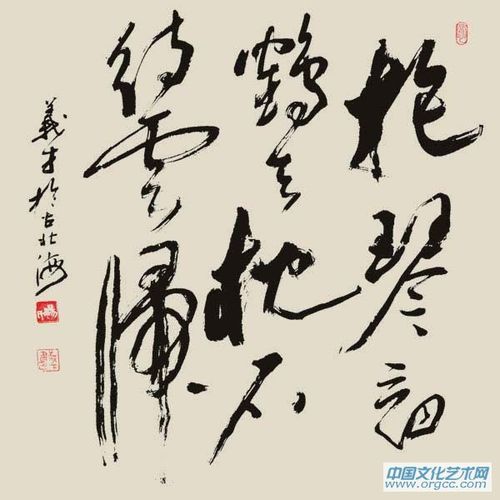 抱琴看
鶴去枕石
待雲歸
義才於古北海
中国文化艺术网
www.orgcc.com